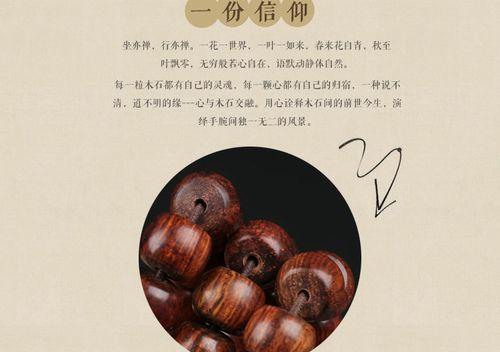 一份信仰
坐亦禅，行亦禅。一花一世界，一叶一如来，春来花自青，秋至
叶飘零，无穷般若心自在，语默动静体自然。
每一粒木石都有自己的灵魂，每一颗心都有自己的归宿，一种说不
清，道不明的缘---心与木石交融。用心诠释木石间的前世今生，演
绎手腕间独一无二的风景。